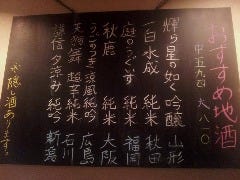 おすすめ地酒
中五九四 大八一〇
輝ら星の如く 吟醸 山形
一白水成 純米 秋田
庭のうぐいす 純米 福岡
秋鹿 純米 大阪
うごのつき 涼風純吟 広島
天狗舞 超辛純米 石川
謙信 夕涼み 純吟 新潟
隠し酒あります。